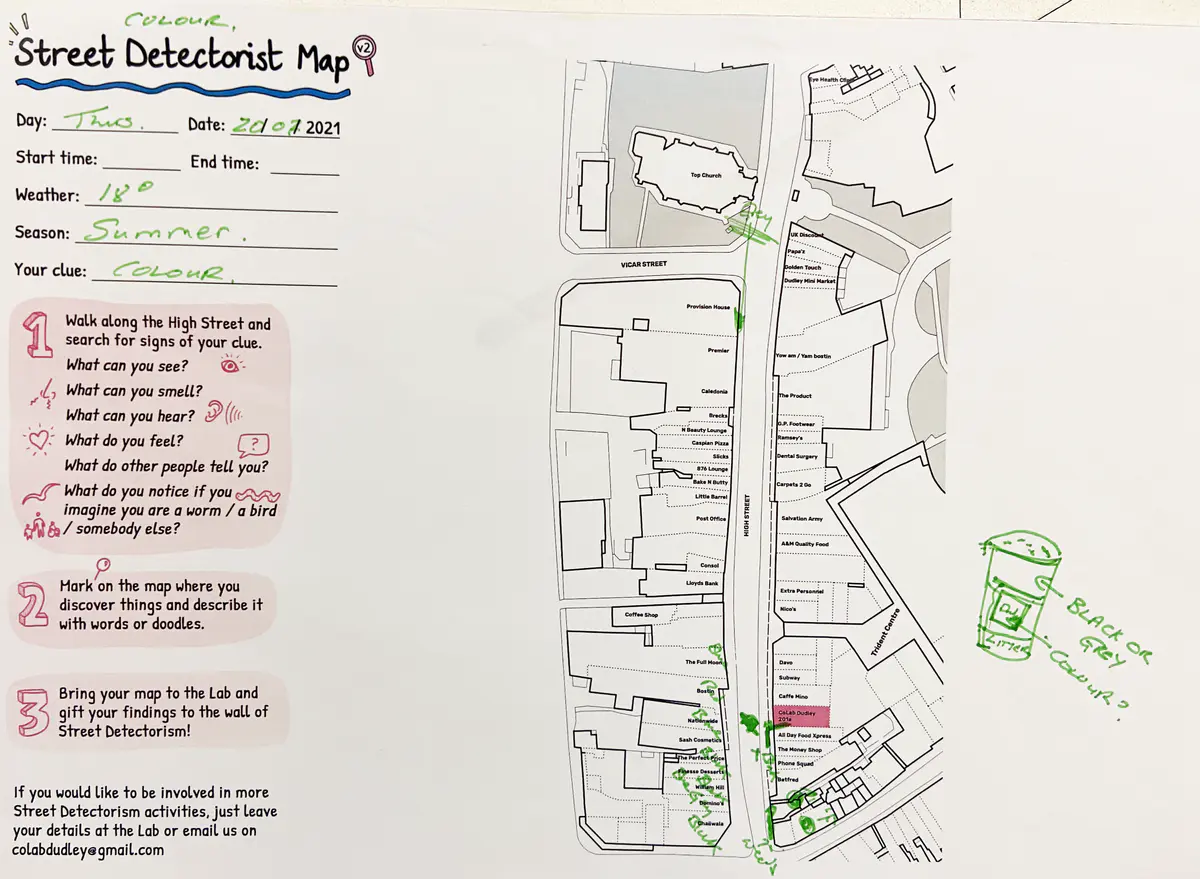 COLOUR.
Street Detectorist Map v2
Day: Thus. Date: 20/07/2021
Start time: End time:
Weather: 18°
Season: Summer.
Your clue: COLOUR.
1
Walk along the High Street and
search for signs of your clue.
What can you see?
What can you smell?
What can you hear?
What do you feel?
?
What do other people tell you?
What do you notice if you
imagine you are a worm / a bird
/ somebody else?
2
Mark on the map where you
discover things and describe it
with words or doodles.
3
Bring your map to the Lab and
gift your findings to the wall of
Street Detectorism!
If you would like to be involved in more
Street Detectorism activities, just leave
your details at the Lab or email us on
colabdudley@gmail.com
Eye Health Clinic
Top Church
Grey
VICAR STREET
UK Discount
Papa's
Golden Touch
Dudley Mini Market
Provision House
Premier
Yow am / Yam bostin
Caledonia
The Product
Brecks
G.P. Footwear
N Beauty Lounge
Ramsey's
Caspian Pizza
Slicks
Dental Surgery
876 Lounge
Bake N Butty
Carpets 2 Go
Little Barrel
HIGH STREET
Post Office
Salvation Army
A&M Quality Food
Consol
Lloyds Bank
Extra Personnel
Nico's
Coffee Shop
Trident Centre
The Full Moon
Davo
Subway
Bostin
Caffe Mino
Nationwide
CoLab Dudley
201a
Sash Cosmetics
All Day Food Xpress
The Perfect Price
The Money Shop
Finesse Desserts
Phone Squad
William Hill
Betfred
Domino's
Chaiiwala
Weeds
BLACK OR
GREY
LITTER
COLOUR?